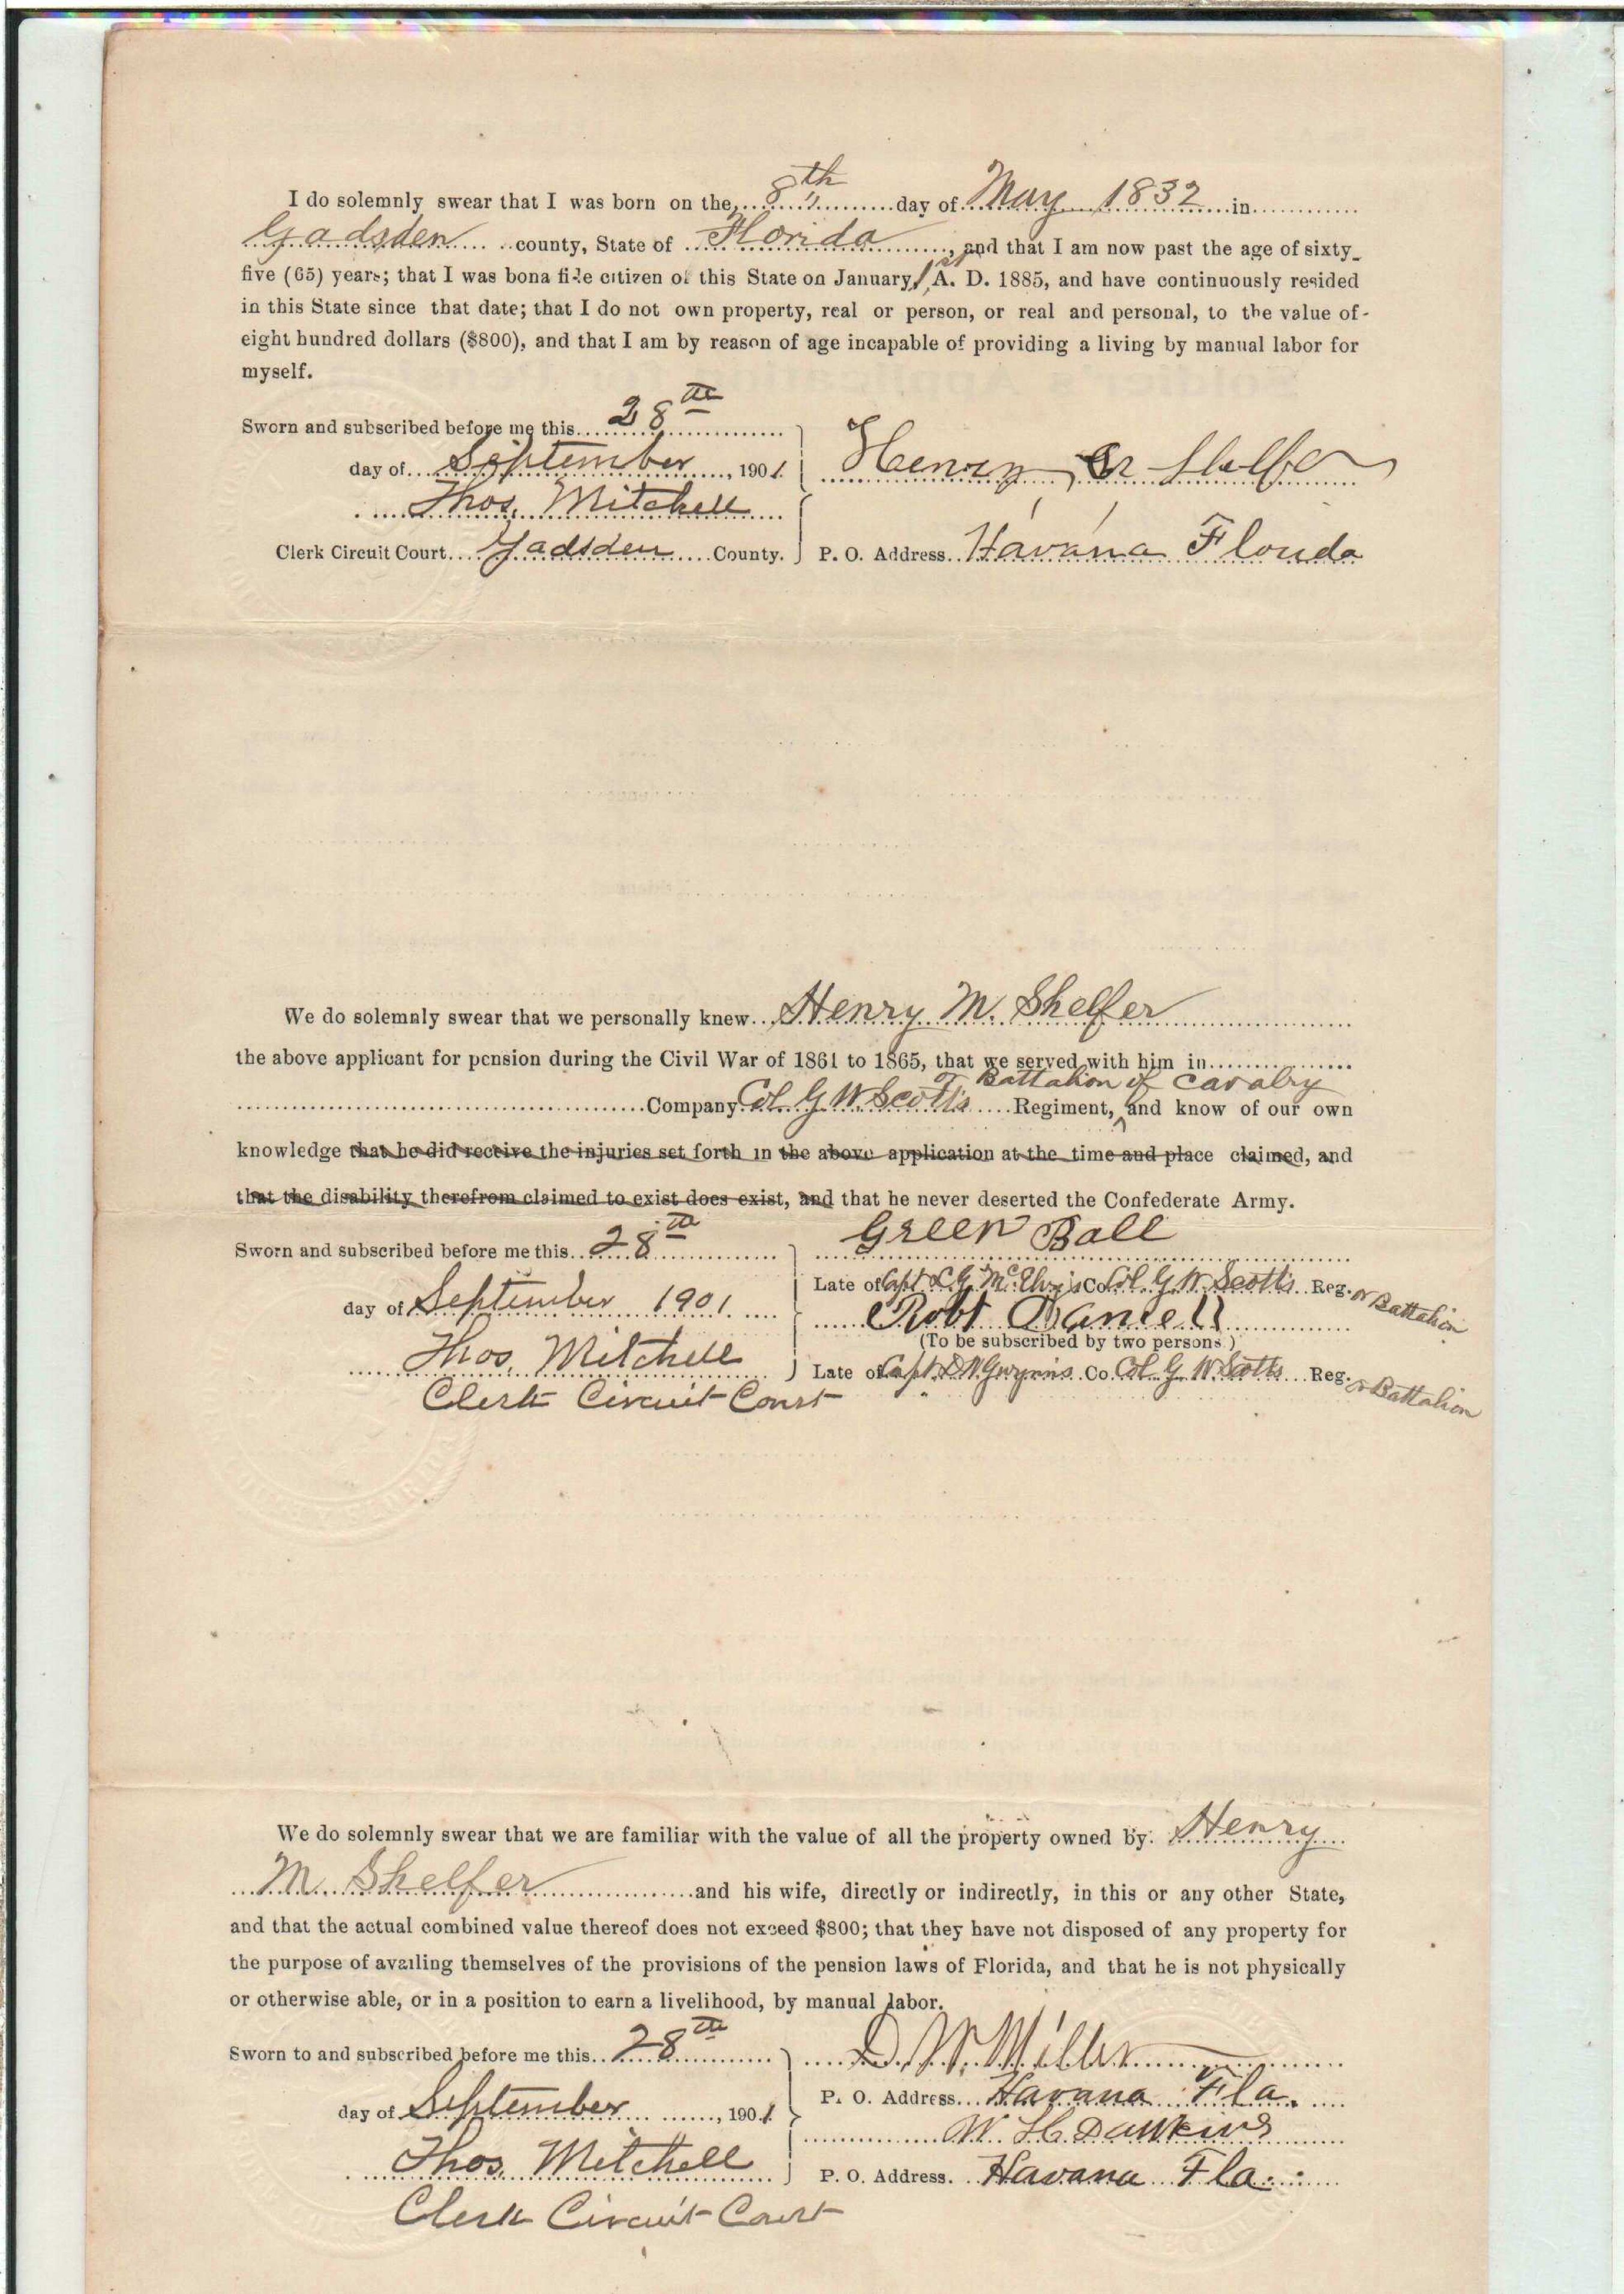 I do solemnly swear that I was born on the 8th day of May 1832 in
Gadsden county, State of Florida, and that I am now past the age of sixty-
five (65) years; that I was bona fide citizen of this State on January 1st A. D. 1885, and have continuously resided
in this State since that date; that I do not own property, real or person, or real and personal, to the value of
eight hundred dollars ($800), and that I am by reason of age incapable of providing a living by manual labor for
myself.
Sworn and subscribed before me this 28th
day of September, 1901. Henry M Shelfer
Thos. Mitchell
Clerk Circuit Court Gadsden County. P. O. Address Havana Florida
We do solemnly swear that we personally knew Henry M. Shelfer
the above applicant for pension during the Civil War of 1861 to 1865, that we served with him in
or Battalion of Cavalry
Company Col. G W Scott's Regiment, and know of our own
knowledge that he did receive the injuries set forth in the above application at the time and place claimed, and
that the disability therefrom claimed to exist does exist, and that he never deserted the Confederate Army.
Sworn and subscribed before me this 28th Green Ball
Late of Capt L. G. Co. Col. G. W. Scotts Reg. or Battalion
day of September 1901. Robt Daniell
(To be subscribed by two persons.)
Thos. Mitchell Late of Capt. Co. Col. G. W. Scotts Reg. or Battalion
Clerk Circuit Court
We do solemnly swear that we are familiar with the value of all the property owned by Henry
M. Shelfer and his wife, directly or indirectly, in this or any other State,
and that the actual combined value thereof does not exceed $800; that they have not disposed of any property for
the purpose of availing themselves of the provisions of the pension laws of Florida, and that he is not physically
or otherwise able, or in a position to earn a livelihood, by manual labor.
Sworn to and subscribed before me this 28th D. W. Miller
P. O. Address Havana Fla.
day of September, 1901.
W. H. Dawkins
Thos. Mitchell P. O. Address. Havana Fla.
Clerk Circuit Court